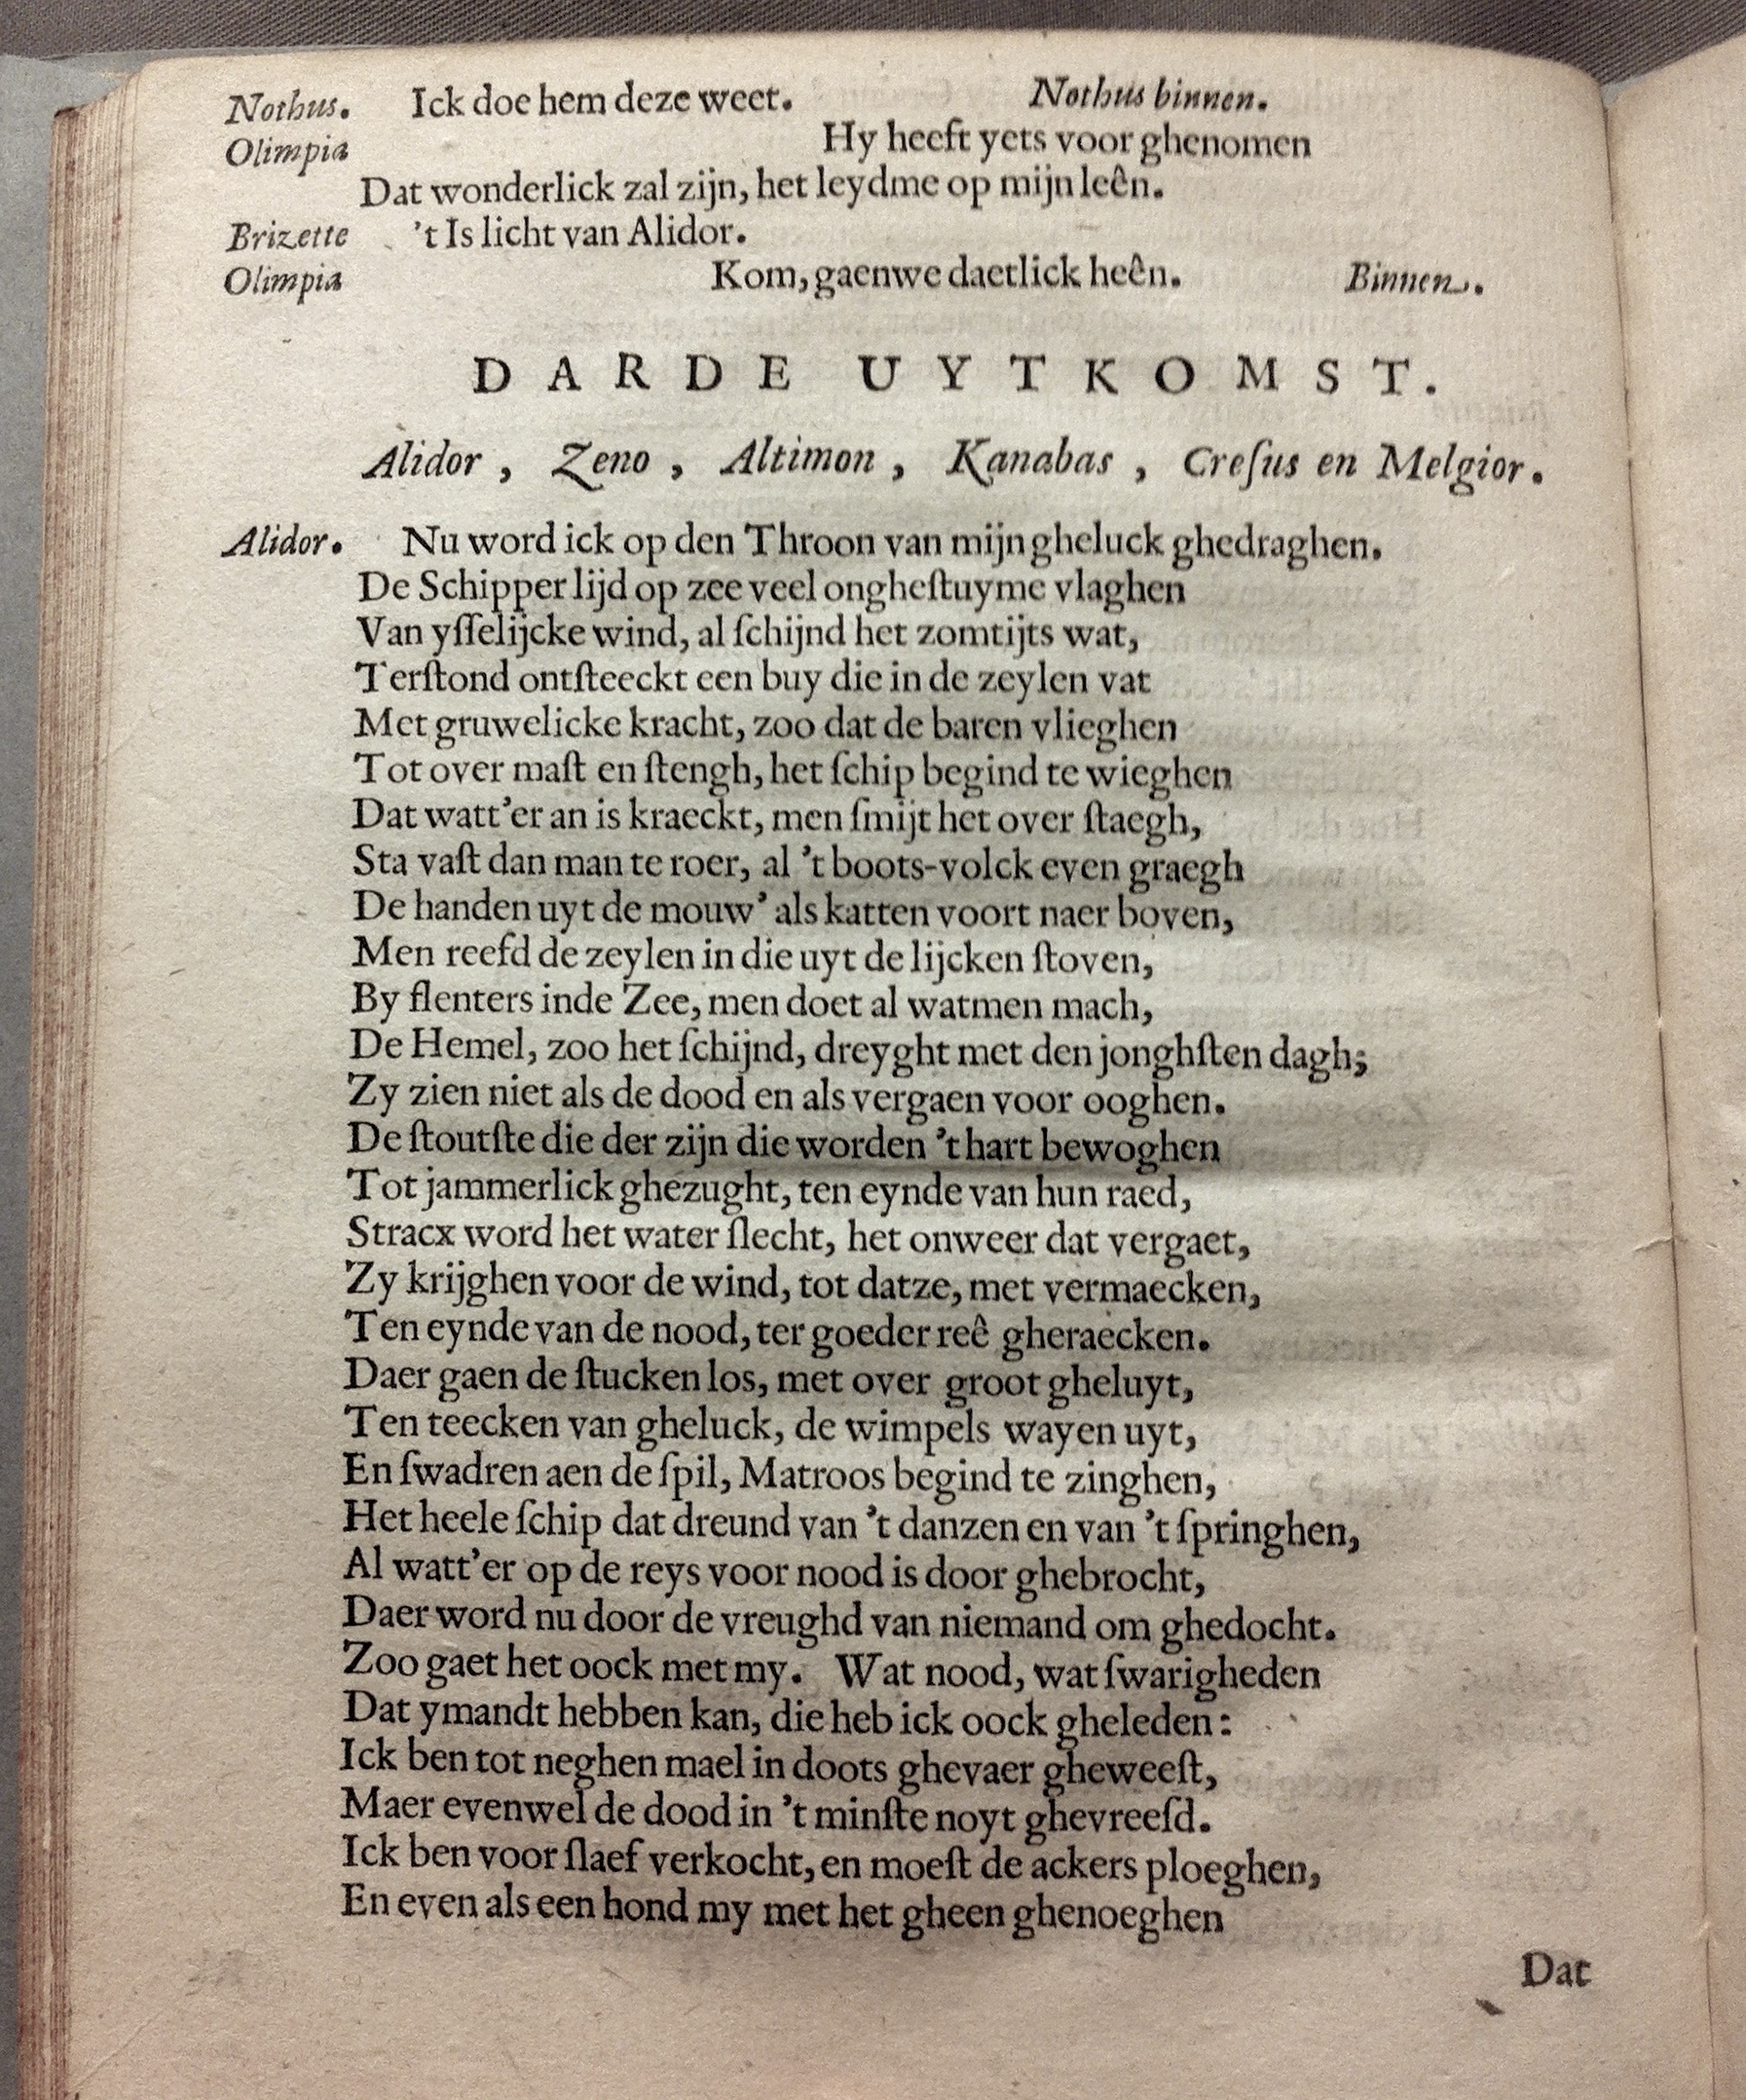 Nothus. Ick doe hem deze weet. Nothus binnen.
Olimpia Hy heeft yets voor ghenomen
Dat wonderlick zal zijn, het leydme op mijn leên.
Brizette 't Is licht van Alidor.
Olimpia Kom, gaenwe daetlick heên. Binnen.
DARDE UYTKOMST.
Alidor, Zeno, Altimon, Kanabas, Creſus en Melgior.
Alidor. Nu word ick op den Throon van mijn gheluck ghedraghen.
De Schipper lijd op zee veel ongheſtuyme vlaghen
Van yſſelijcke wind, al ſchijnd het zomtijts wat,
Terſtond ontſteeckt een buy die in de zeylen vat
Met gruwelicke kracht, zoo dat de baren vlieghen
Tot over maſt en ſtengh, het ſchip begind te wieghen
Dat watt'er an is kraeckt, men ſmijt het over ſtaegh,
Sta vaſt dan man te roer, al 't boots-volck even graegh
De handen uyt de mouw' als katten voort naer boven,
Men reefd de zeylen in die uyt de lijcken ſtoven,
By flenters inde Zee, men doet al watmen mach,
De Hemel, zoo het ſchijnd, dreyght met den jonghſten dagh;
Zy zien niet als de dood en als vergaen voor ooghen.
De ſtoutſte die der zijn die worden 't hart bewoghen
Tot jammerlick ghezught, ten eynde van hun raed,
Stracx word het water ſlecht, het onweer dat vergaet,
Zy krijghen voor de wind, tot datze, met vermaecken,
Ten eynde van de nood, ter goeder reê gheraecken.
Daer gaen de ſtucken los, met over groot gheluyt,
Ten teecken van gheluck, de wimpels wayen uyt,
En ſwadren aen de ſpil, Matroos begind te zinghen,
Het heele ſchip dat dreund van 't danzen en van 't ſpringhen,
Al watt'er op de reys voor nood is door ghebrocht,
Daer word nu door de vreughd van niemand om ghedocht.
Zoo gaet het oock met my. Wat nood, wat ſwarigheden
Dat ymandt hebben kan, die heb ick oock gheleden:
Ick ben tot neghen mael in doots ghevaer gheweeſt,
Maer evenwel de dood in 't minſte noyt ghevreeſd.
Ick ben voor ſlaef verkocht, en moeſt de ackers ploeghen,
En even als een hond my met het gheen ghenoeghen
Dat